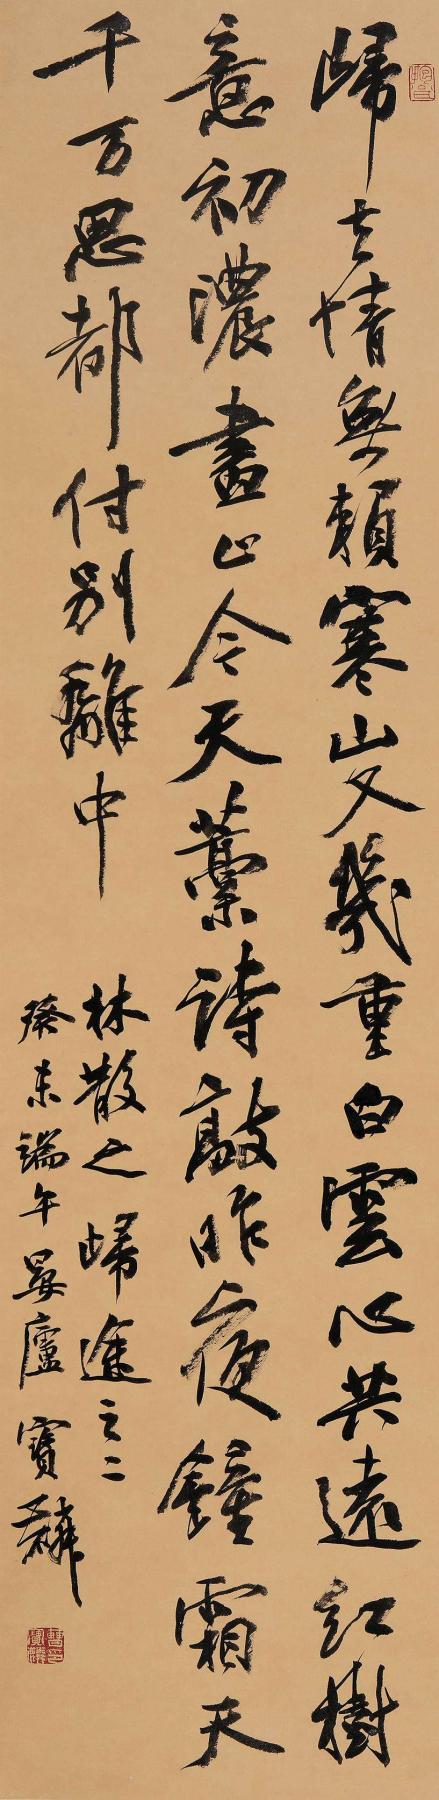 歸去情無賴寒山又幾重白雲心共遠紅樹
意初濃畫止今天藁詩敲昨夜鐘霜天
千万思都付別離中
林散之歸途之二
癸未端午晏廬寶麟
曹印寶麟